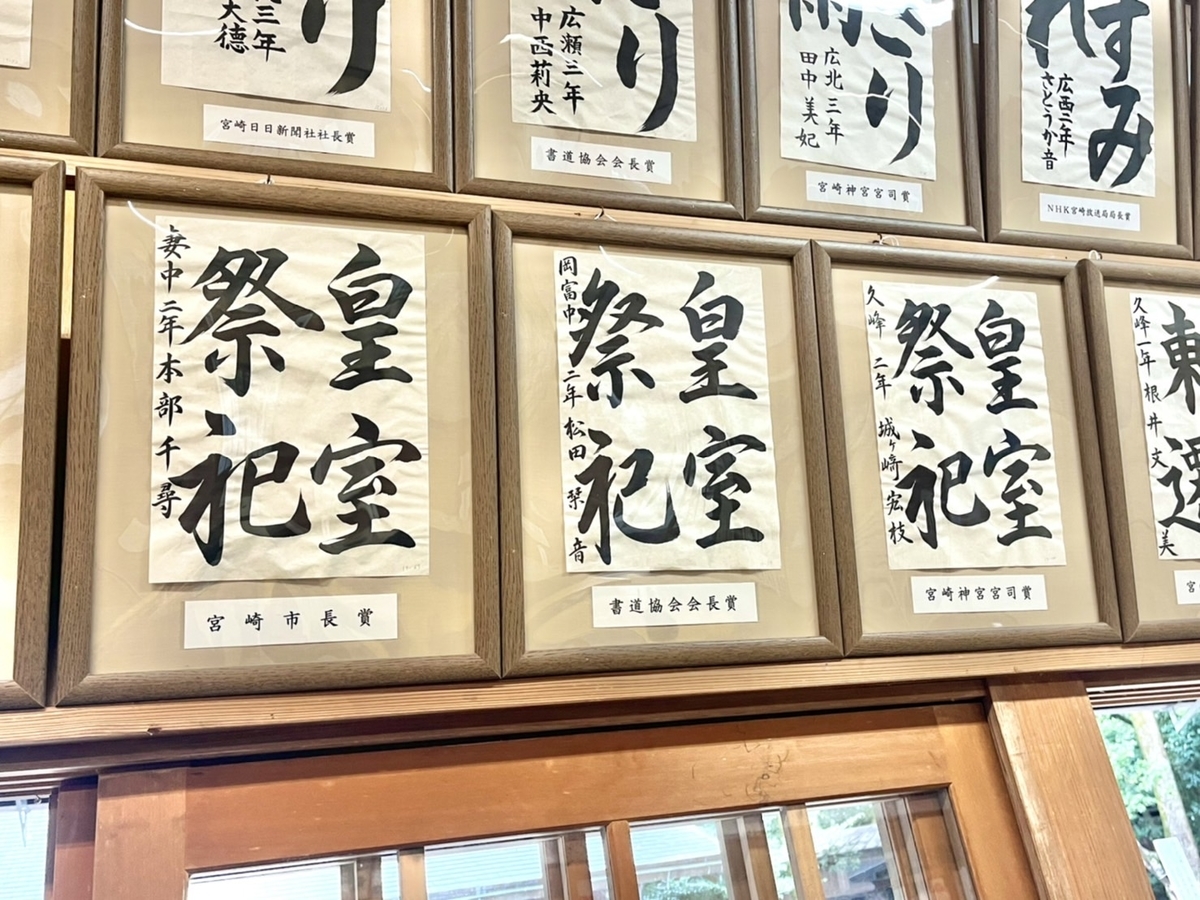 三年
大徳
り
宮崎日日新聞社社長賞
り
広瀬三年
中西莉央
書道協会会長賞
り
広北三年
田中美妃
宮崎神宮宮司賞
すみ
れ
広西二年
さとうか音
NHK宮崎放送局局長賞
皇室
祭祀
妻中二年本部千尋
宮崎市長賞
皇室
祭祀
岡富中二年松田栞音
書道協会会長賞
皇室
祭祀
久峰二年城ヶ崎宏枝
宮崎神宮宮司賞
久峰一年根井文美
宮